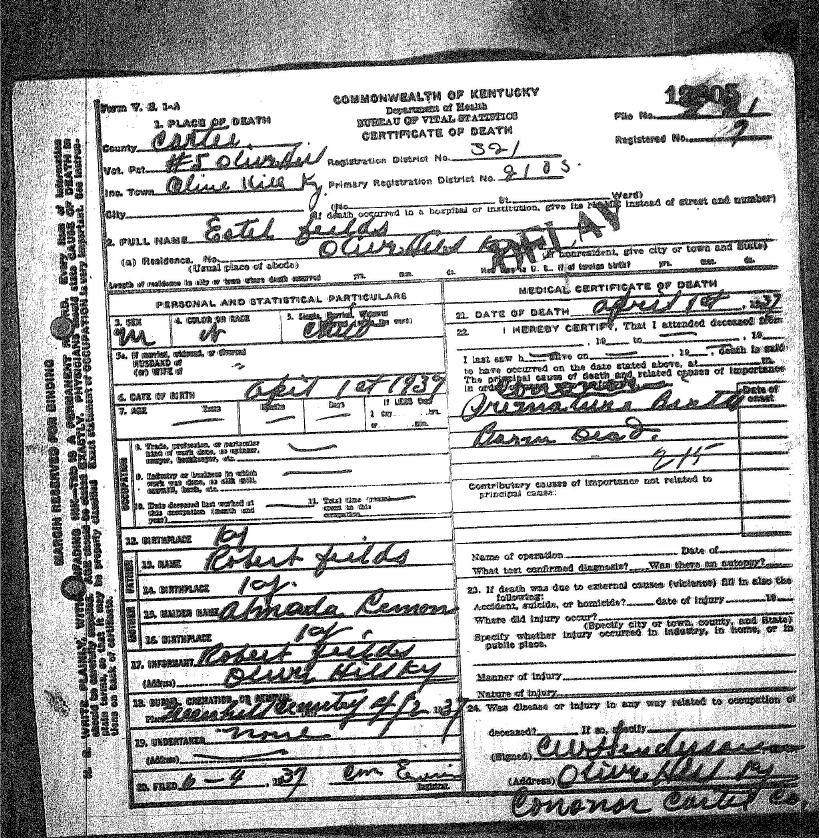 Form V. S. 1-A
COMMONWEALTH OF KENTUCKY
Department of Health
BUREAU OF VITAL STATISTICS
CERTIFICATE OF DEATH
File No.
Registered No. 7
1. PLACE OF DEATH
County Carter
Vot. Pct. #5 Olive Hill Registration District No. 321
Inc. Town Olive Hill Ky. Primary Registration District No. 2103.
City (No. St. Ward)
(If death occurred in a hospital or institution, give its NAME instead of street and number)
2. FULL NAME Estel fields
DELAY
(a) Residence. No. Olive Hill Ky
(Usual place of abode) (If nonresident, give city or town and State)
Length of residence in city or town where death occurred yrs. mos. ds. How long in U. S., if of foreign birth? yrs. mos. ds.
PERSONAL AND STATISTICAL PARTICULARS
3. SEX M
4. COLOR OR RACE
5. Single, Married, Widowed
5a. If married, widowed, or divorced
HUSBAND of
(or) WIFE of
6. DATE OF BIRTH April 1st 1937
7. AGE Years Months Days If LESS than
1 day, hrs.
or min.
OCCUPATION
8. Trade, profession, or particular
kind of work done, as spinner,
sawyer, bookkeeper, etc.
9. Industry or business in which
work was done, as silk mill,
sawmill, bank, etc.
10. Date deceased last worked at
this occupation (month and
year)
11. Total time (years)
spent in this
occupation
12. BIRTHPLACE Ky
FATHER
13. NAME Robert fields
14. BIRTHPLACE Ky.
MOTHER
15. MAIDEN NAME Almada Lemon
16. BIRTHPLACE Ky.
17. INFORMANT Robert fields
(Address) Olive Hill Ky
18. BURIAL, CREMATION, OR REMOVAL
Place cemetery 1937
19. UNDERTAKER none
(Address)
20. FILED 6-4, 1937
Registrar.
MEDICAL CERTIFICATE OF DEATH
21. DATE OF DEATH April 1st, 1937
22. I HEREBY CERTIFY, That I attended deceased from
, 19 to , 19
I last saw h alive on , 19 , death is said
to have occurred on the date stated above, at m.
The principal cause of death and related causes of importance
in order of
Date of
onset
Premature Birth
Born Dead.
Contributory causes of importance not related to
principal cause:
Name of operation Date of
What test confirmed diagnosis? Was there an autopsy?
23. If death was due to external causes (violence) fill in also the
following:
Accident, suicide, or homicide? date of injury 19
Where did injury occur?
(Specify city or town, county, and State)
Specify whether injury occurred in industry, in home, or in
public place.
Manner of injury
Nature of injury
24. Was disease or injury in any way related to occupation of
deceased? If so, specify
(Signed)
(Address) Olive Hill Ky
Cononor Carter Co.
MARGIN RESERVED FOR BINDING